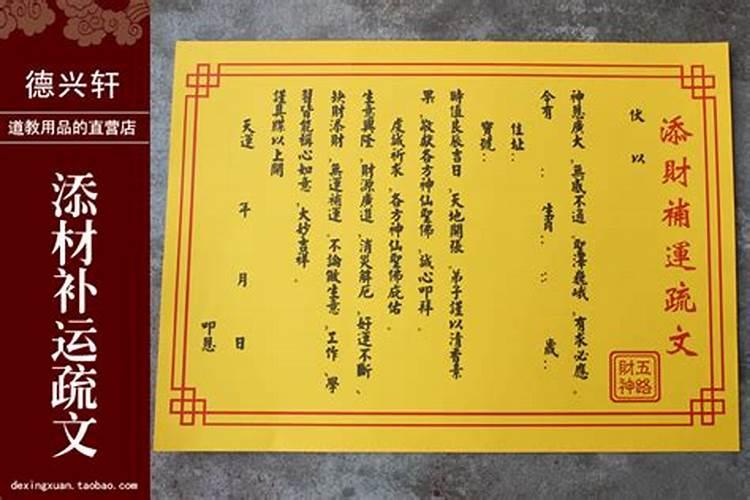 德兴轩
道教用品的直营店
添材补运疏文
dexingxuan.taobao.com
添財補運疏文
五路
財神
伏以
神恩廣大、無感不通、聖澤巍峨、有求必應。
今有：生肖：：歲、
住址：
寶號：
時值良辰吉日、天地開張、弟子謹以清香素
果、敬献各方神仙聖佛、誠心叩拜。
虔誠祈求、各方神仙聖佛庇佑。
生意興隆、財源廣進、消災解厄、好運不斷、
缺財添財、無運補運、不論做生意、工作、學
習皆能稱心如意、大妙吉祥。
謹具牒以上聞
天運　年　月　日
叩恩